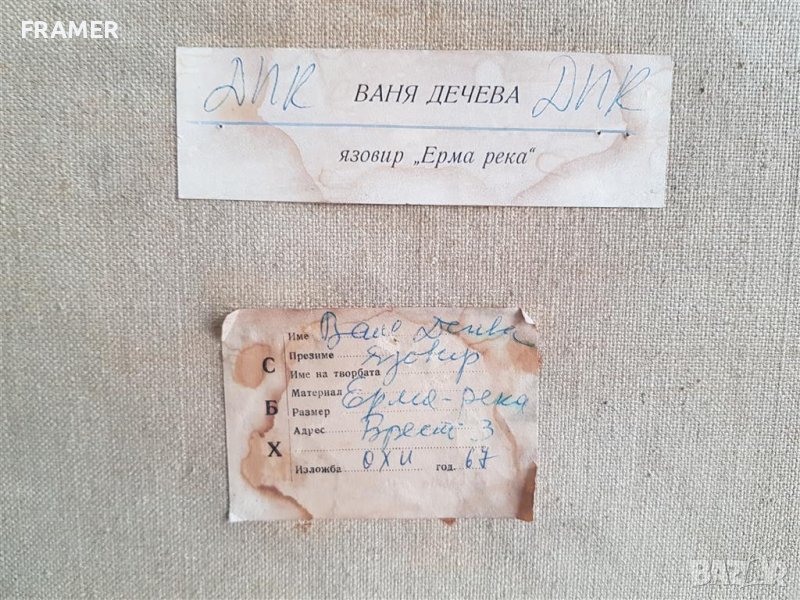 FRAMER
ДПК ВАНЯ ДЕЧЕВА ДПК
язовир „Ерма река“
С Б Х
Име Ваня Дечева
Презиме Язовир
Име на творбата
Материал Ерма-река
Размер
Адрес Брест 3
Изложба ОХИ год. 67
BAZAR